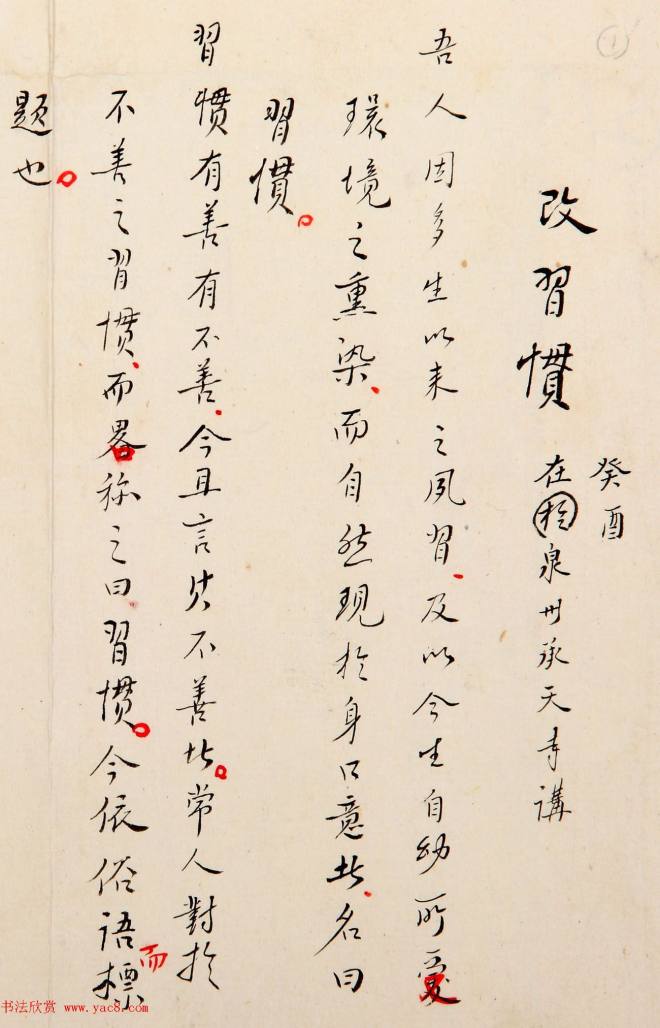 ①
癸酉
改習慣 在於泉州承天寺講
吾人因多生以來之夙習、及以今生自幼所受
環境之熏染、而自然現於身口意者、名曰
習慣。
習慣有善有不善、今且言其不善者。常人對於
不善之習慣、而畧称之曰習慣。今依俗語而標
題也。
书法欣赏 www.yac8.com